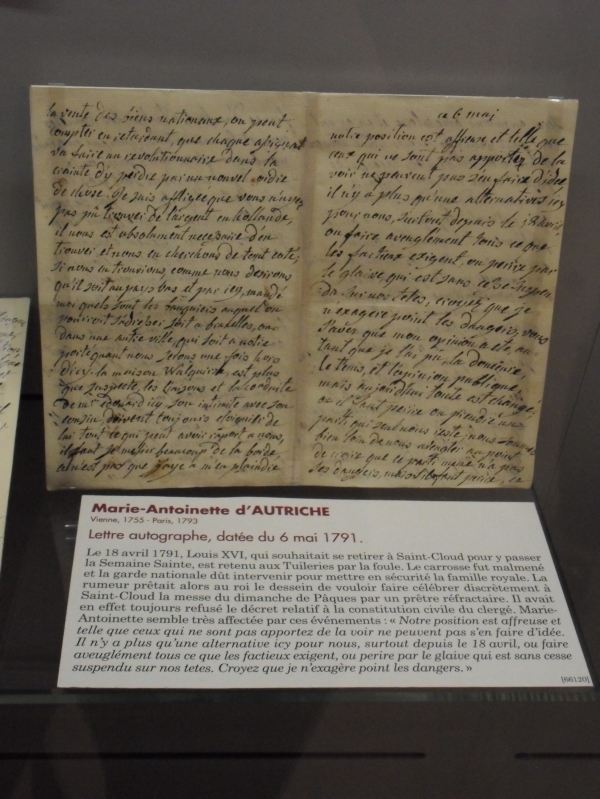 la vente des biens nationaux, on peut
compter en retardant, que chaque assignat
va faire un revolutionnaire dans la
crainte d'y perdre par un nouvel ordre
de chose. Je suis affligée que vous n'avez
pas pu trouver de l'argent en hollande,
il nous est absolument necessaire d'en
trouver et nous en cherchons de tout coté,
si nous en trouvions, comme nous desirons
qu'il soit au pays bas et pas icy, mandé
moi quels sont les banquiers auquel on
pourroit s'adresser soit a bruxelles, ou
dans une autre ville, qui soit a notre
porté quant nous serons une fois hors
d'icy. la maison Walquiers, est plus
que suspecte, les liaisons et la
de mr edouard icy son intimité avec son
cousin doivent toujours éloigner de
lui tout ce qui peut avoir raport a nous,
il faut je me
ce n'est pas que j'aye a m'en plaindre
ce 6 mai
notre position est affreuse et telle que
ceux qui ne sont pas apportez de la
voir ne peuvent pas s'en faire d'idée
il n'y a plus qu'une alternative icy
pour nous, surtout depuis le 18 avril
ou faire aveuglement tous ce que
les factieux exigent ou perire par
le glaive qui est sans cesse suspen-
du sur nos tetes, croyez que je
n'exagere point les dangers, vous
savez que mon opinion a été, au-
tant que je l'ai pu, la douceur,
le tems, et l'opinion publique,
mais aujourd'hui tout est changé,
ou il faut perire ou prendre un
parti qui seul nous reste, nous sommes
bien loin de nous aveugler au point
de croire que ce parti meme n'a pas
ses dangers, mais s'il faut perire, ce
Marie-Antoinette d'AUTRICHE
Vienne, 1755 - Paris, 1793
Lettre autographe, datée du 6 mai 1791.
Le 18 avril 1791, Louis XVI, qui souhaitait se retirer à Saint-Cloud pour y passer
la Semaine Sainte, est retenu aux Tuileries par la foule. Le carrosse fut malmené
et la garde nationale dût intervenir pour mettre en sécurité la famille royale. La
rumeur prêtait alors au roi le dessein de vouloir faire célébrer discrètement à
Saint-Cloud la messe du dimanche de Pâques par un prêtre réfractaire. Il avait
en effet toujours refusé le décret relatif à la constitution civile du clergé. Marie-
Antoinette semble très affectée par ces événements : « Notre position est affreuse et
telle que ceux qui ne sont pas apportez de la voir ne peuvent pas s'en faire d'idée.
Il n'y a plus qu'une alternative icy pour nous, surtout depuis le 18 avril, ou faire
aveuglément tous ce que les factieux exigent, ou perire par le glaive qui est sans cesse
suspendu sur nos tetes. Croyez que je n'exagère point les dangers. »
[66120]